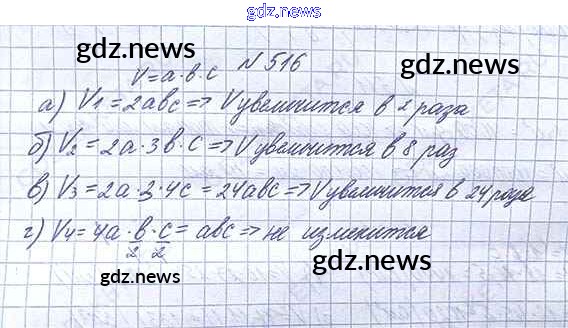 gdz.news
gdz.news
gdz.news
N 516
V=a·b·c
а) V1 = 2abc => V увеличится в 2 раза
б) V2 = 2a·3b·c => V увеличится в 8 раз
в) V3 = 2a·3·4c = 24abc => V увеличится в 24 раза
г) V4 = 4a·b/2·c/2 = abc => не изменится
gdz.news
gdz.news